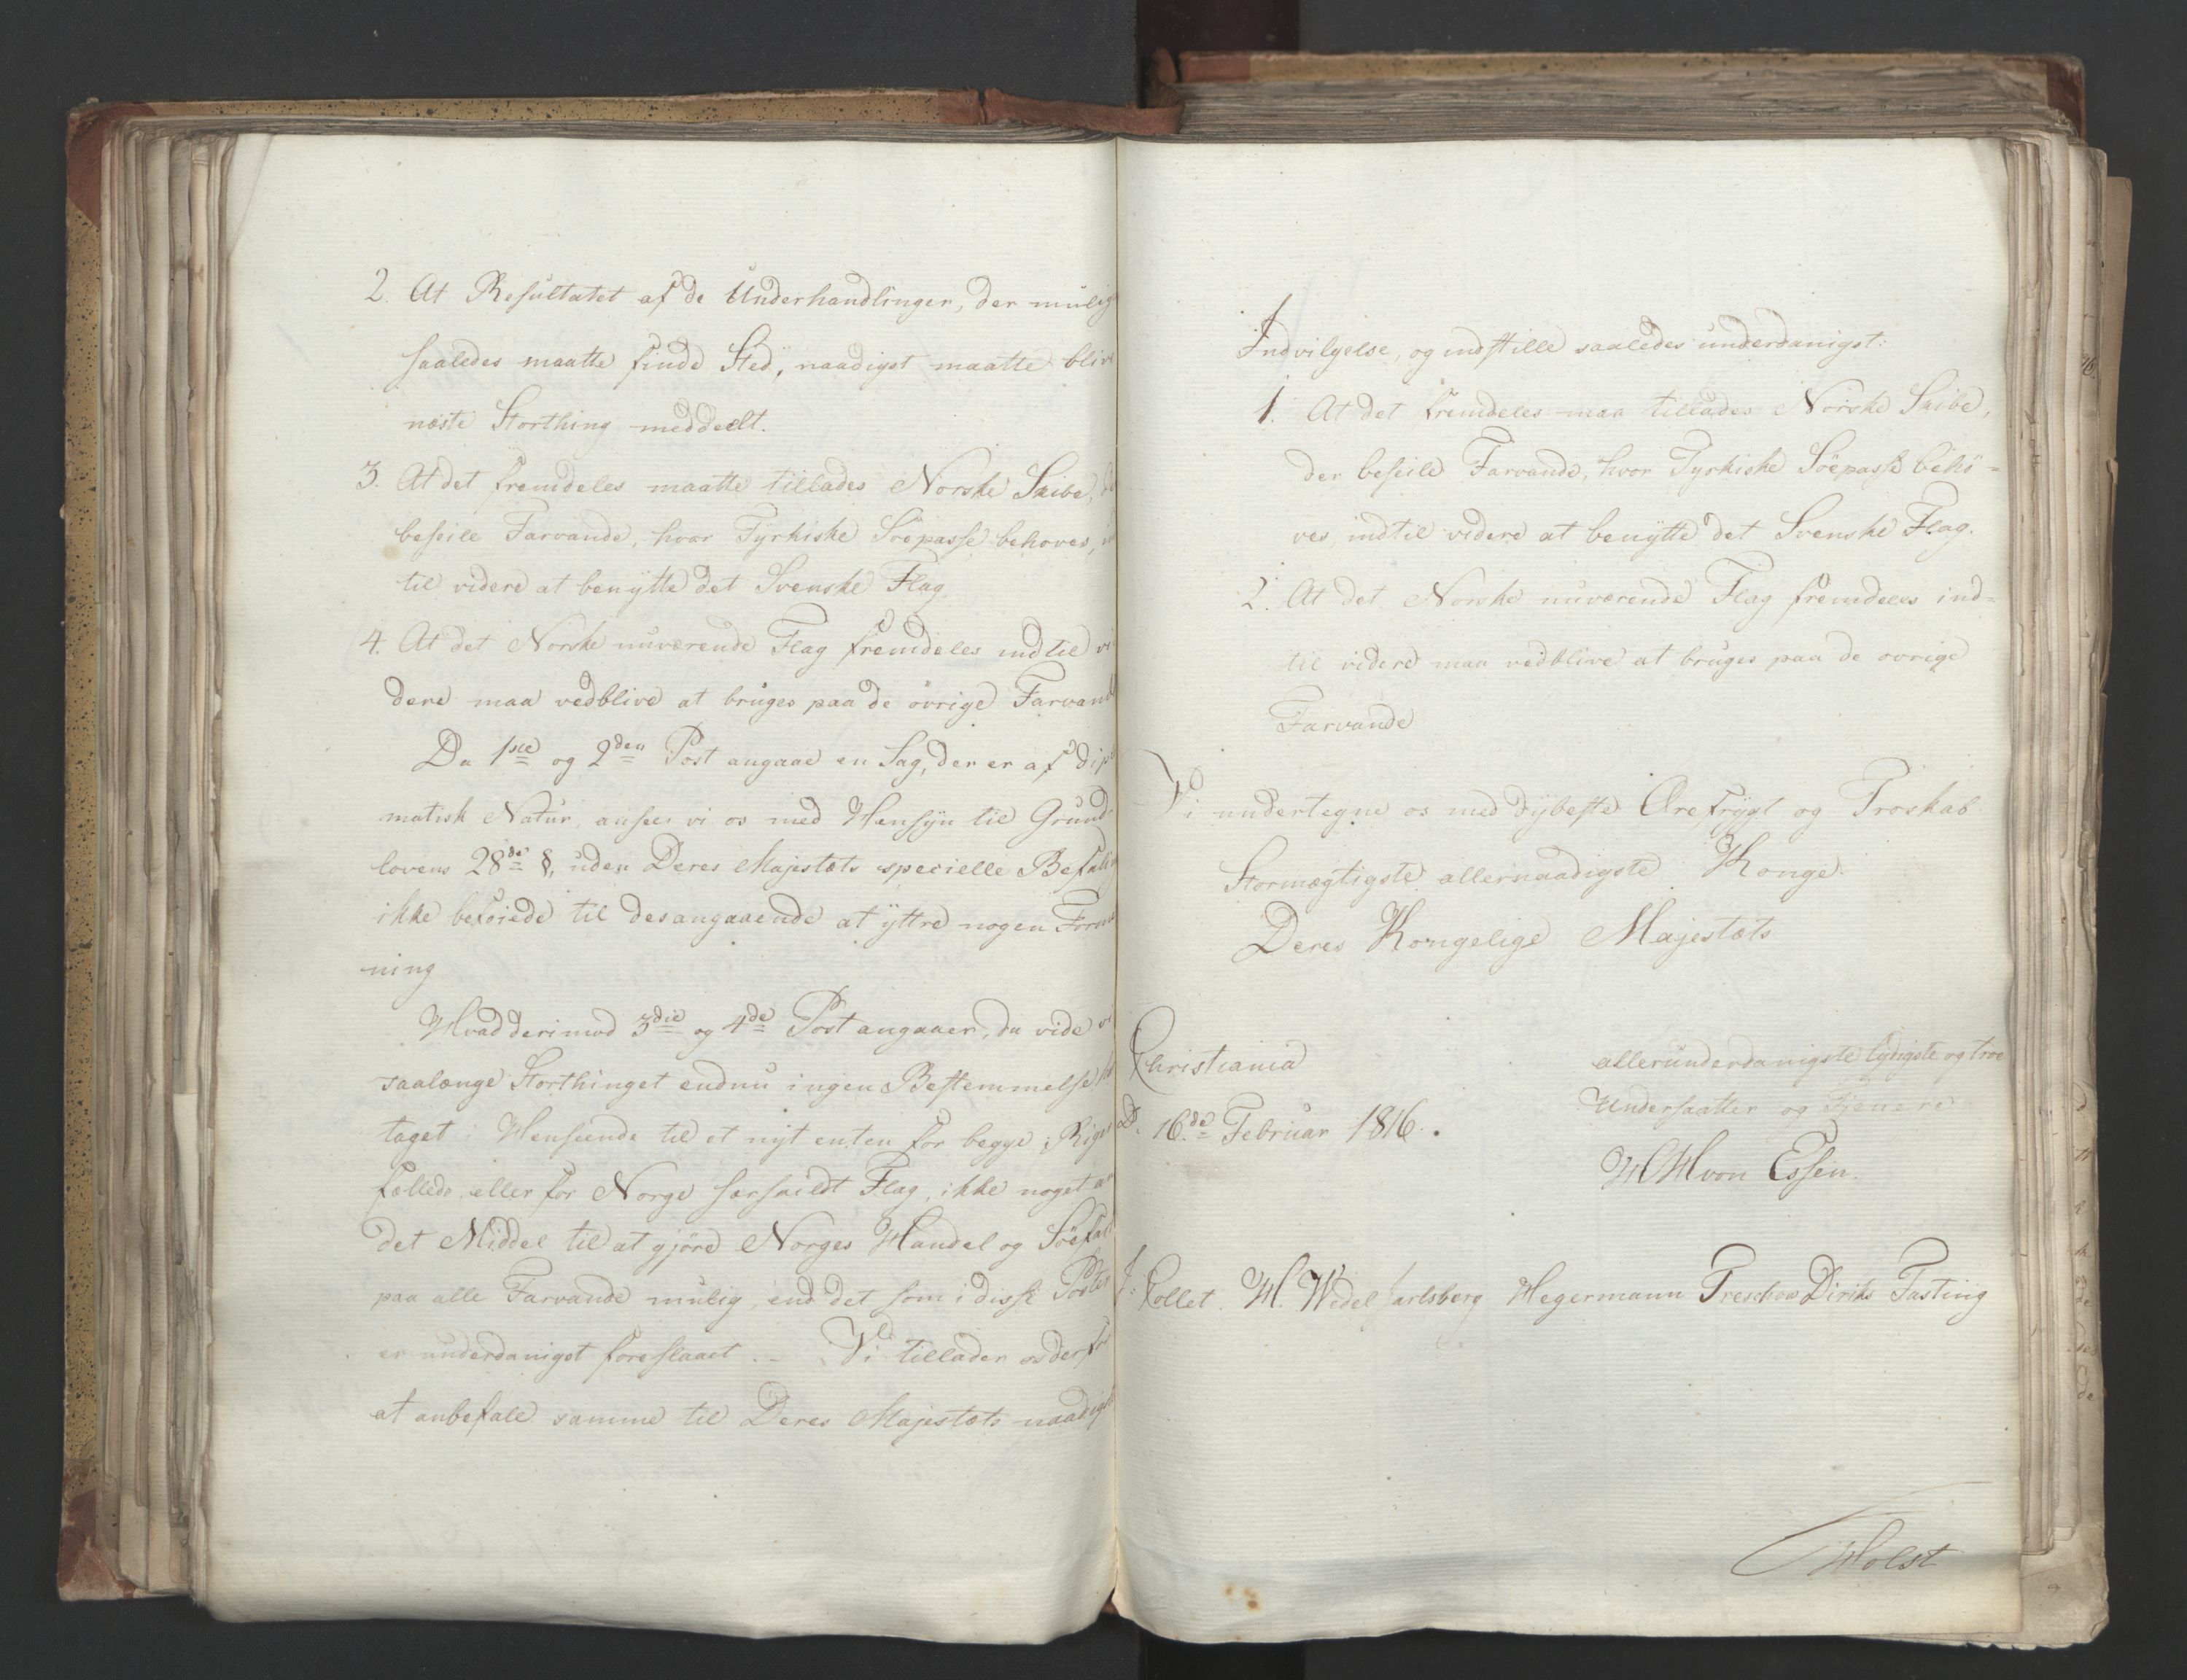 2. At Resultatet af de Underhandlinger, der mulig
saaledes maatte finde Sted, naadigst maatte blive
næste Storthing meddeelt.
3. At det fremdeles maatte tillades Norske Skibe,
beseile Farvande, hvor Tyrkiske Söepasse behoves,
til videre at benytte det Svenske Flag.
4. At det Norske nuværende Flag fremdeles indtil vi
dere maa vedblive at bruges paa de övrige Farvand
Da 1ste og 2den Post angaae en Sag, der er af dip
matisk Natur, ansee vi os med Hensyn til Grund
lovens 28de §, uden Deres Majestæts specielle Befaling
ikke beföiede til desangaaende at yttre nogen
ning
Hvad derimod 3die og 4de Post angaaer, da vide vi
saalænge Storthinget endnu ingen Bestemmelse
taget i Henseende til et nyt enten for begge Riger
fælleds eller for Norge særskildt Flag, ikke noget an
det Middel til at gjöre Norges Handel og Söefart
paa alle Farvande mulig end det som i disse Poster
er underdanigst foreslaaet. - Vi tillader os derfor
at anbefale samme til Deres Majestæts naadigste
Indvilgelse, og indstille saaledes underdanigst:
1. At det fremdeles maa tillades Norske Skibe,
der beseile Farvande, hvor Tyrkiske Söepasse behö=
ves indtil videre at benytte det Svenske Flag.
2. At det Norske nuværende Flag fremdeles ind=
til videre maa vedblive at bruges paa de ovrige
Farvande
Vi undertegne os med dybeste Ærefrygt og Troskab
Stormægtigste allernaadigste Konge.
Deres Kongelige Majestæts
Christiania
D. 16de Februar 1816.
allerunderdanigste lydigste og troe
Undersaatter og Tjenere
H H von Essen.
J. Collet. H. Wedel Jarlsberg Hegermann Treschow Diriks Fasting
Holst